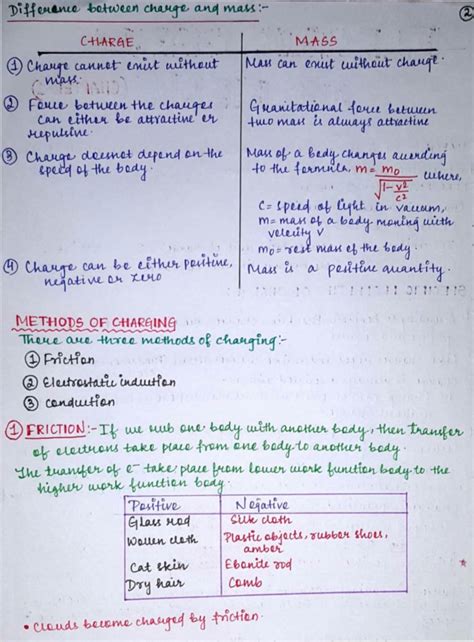 Difference between charge and mass:-
②
CHARGE
MASS
① Charge cannot exist without
mass.
Mass can exist without charge.
② Force between the charges
can either be attractive or
repulsive.
Gravitational force between
two mass is always attractive
③ Charge doesnot depend on the
speed of the body.
Mass of a body changes according
to the formula, m = m₀/√(1 - v²/c²) where,
C = speed of light in vacuum,
m = mass of a body moving with
velocity V
m₀ = rest mass of the body.
④ Charge can be either positive,
negative or zero
Mass is a positive quantity.
METHODS OF CHARGING
There are three methods of charging:-
① Friction
② Electrostatic induction
③ conduction
① FRICTION:- If we rub one body with another body, then transfer
of electrons take place from one body to another body.
The transfer of e⁻ take place from lower work function body to the
higher work function body.
Positive Negative
Glass rod Silk cloth
Wollen cloth Plastic objects, rubber shoes,
amber
Cat skin Ebonide rod
Dry hair Comb
• Clouds become charged by friction.